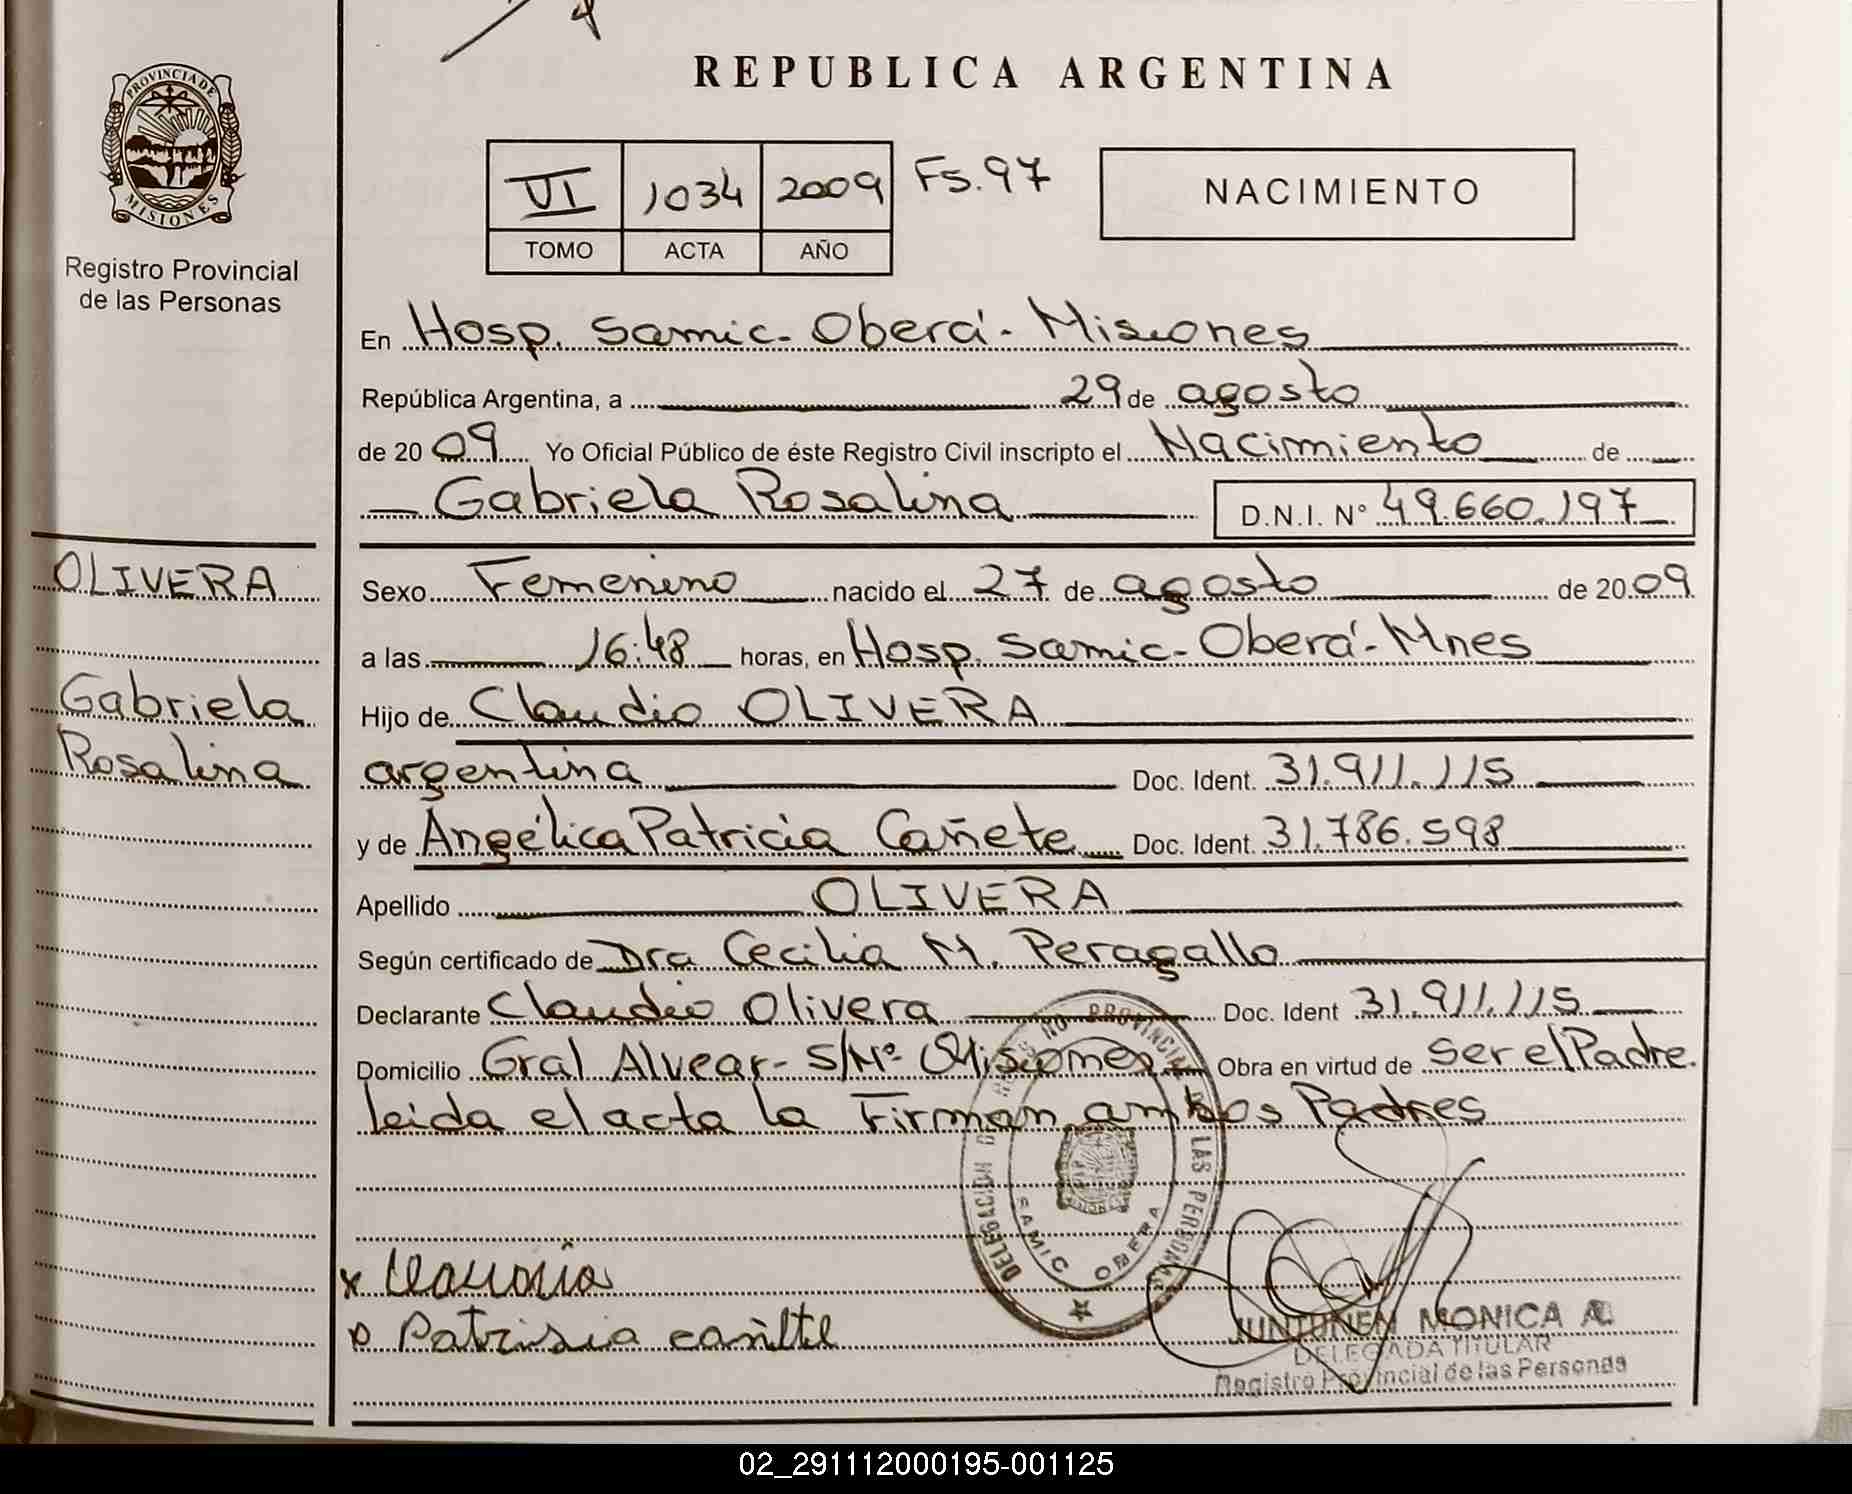 REPUBLICA ARGENTINA
PROVINCIA DE MISIONES
Registro Provincial
de las Personas
VI 1034 2009 Fs.97
TOMO ACTA AÑO
NACIMIENTO
En Hosp. Samic - Oberá - Misiones
República Argentina, a 29 de agosto
de 2009 Yo Oficial Público de éste Registro Civil inscripto el Nacimiento de
Gabriela Rosalina D.N.I. N° 49.660.197
OLIVERA
Gabriela
Rosalina
Sexo Femenino nacido el 27 de agosto de 2009
a las 16:48 horas, en Hosp. Samic - Oberá - Mnes
Hijo de Claudio OLIVERA
argentina Doc. Ident. 31.911.115
y de Angélica Patricia Cañete Doc. Ident. 31.786.598
Apellido OLIVERA
Según certificado de Dra Cecilia M. Peragallo
Declarante Claudio Olivera Doc. Ident 31.911.115
Domicilio Gral Alvear - S/Nº - Misiones Obra en virtud de ser el Padre.
leida el acta la Firman ambos Padres
SAMIC OBERA
x
Patrisia
JUNTUNEN MONICA A.
DELEGADA TITULAR
Registro Provincial de las Personas
02_291112000195-001125